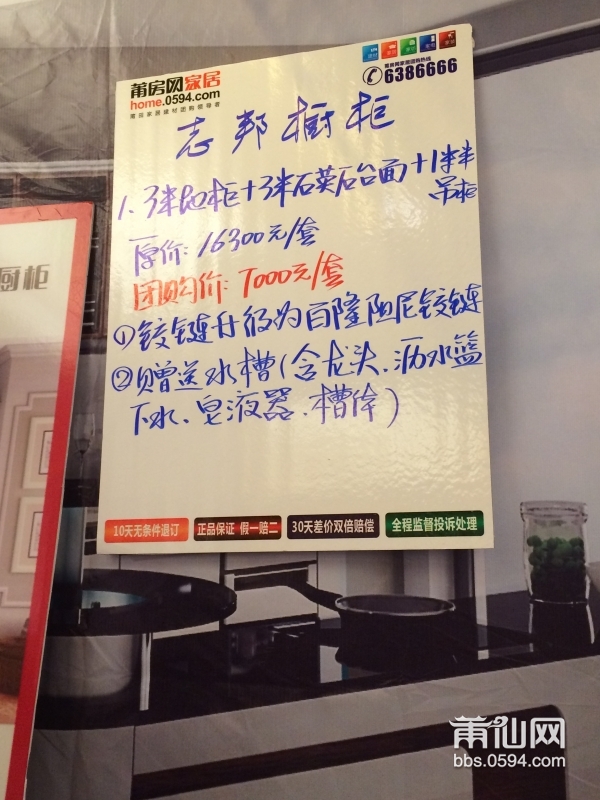 莆房网家居
home.0594.com
莆田家居建材团购领导者
莆房网家居团购热线
6386666
志邦橱柜
1、3米地柜+3米石英石台面+1米
吊柜
原价:16300元/套
团购价:7000元/套
①铰链升级为百隆阻尼铰链
②赠送水槽(含龙头、沥水篮
下水、皂液器、槽体)
10天无条件退订 正品保证 假一赔二 30天差价双倍赔偿 全程监督投诉处理
厨柜
莆仙网
bbs.0594.com